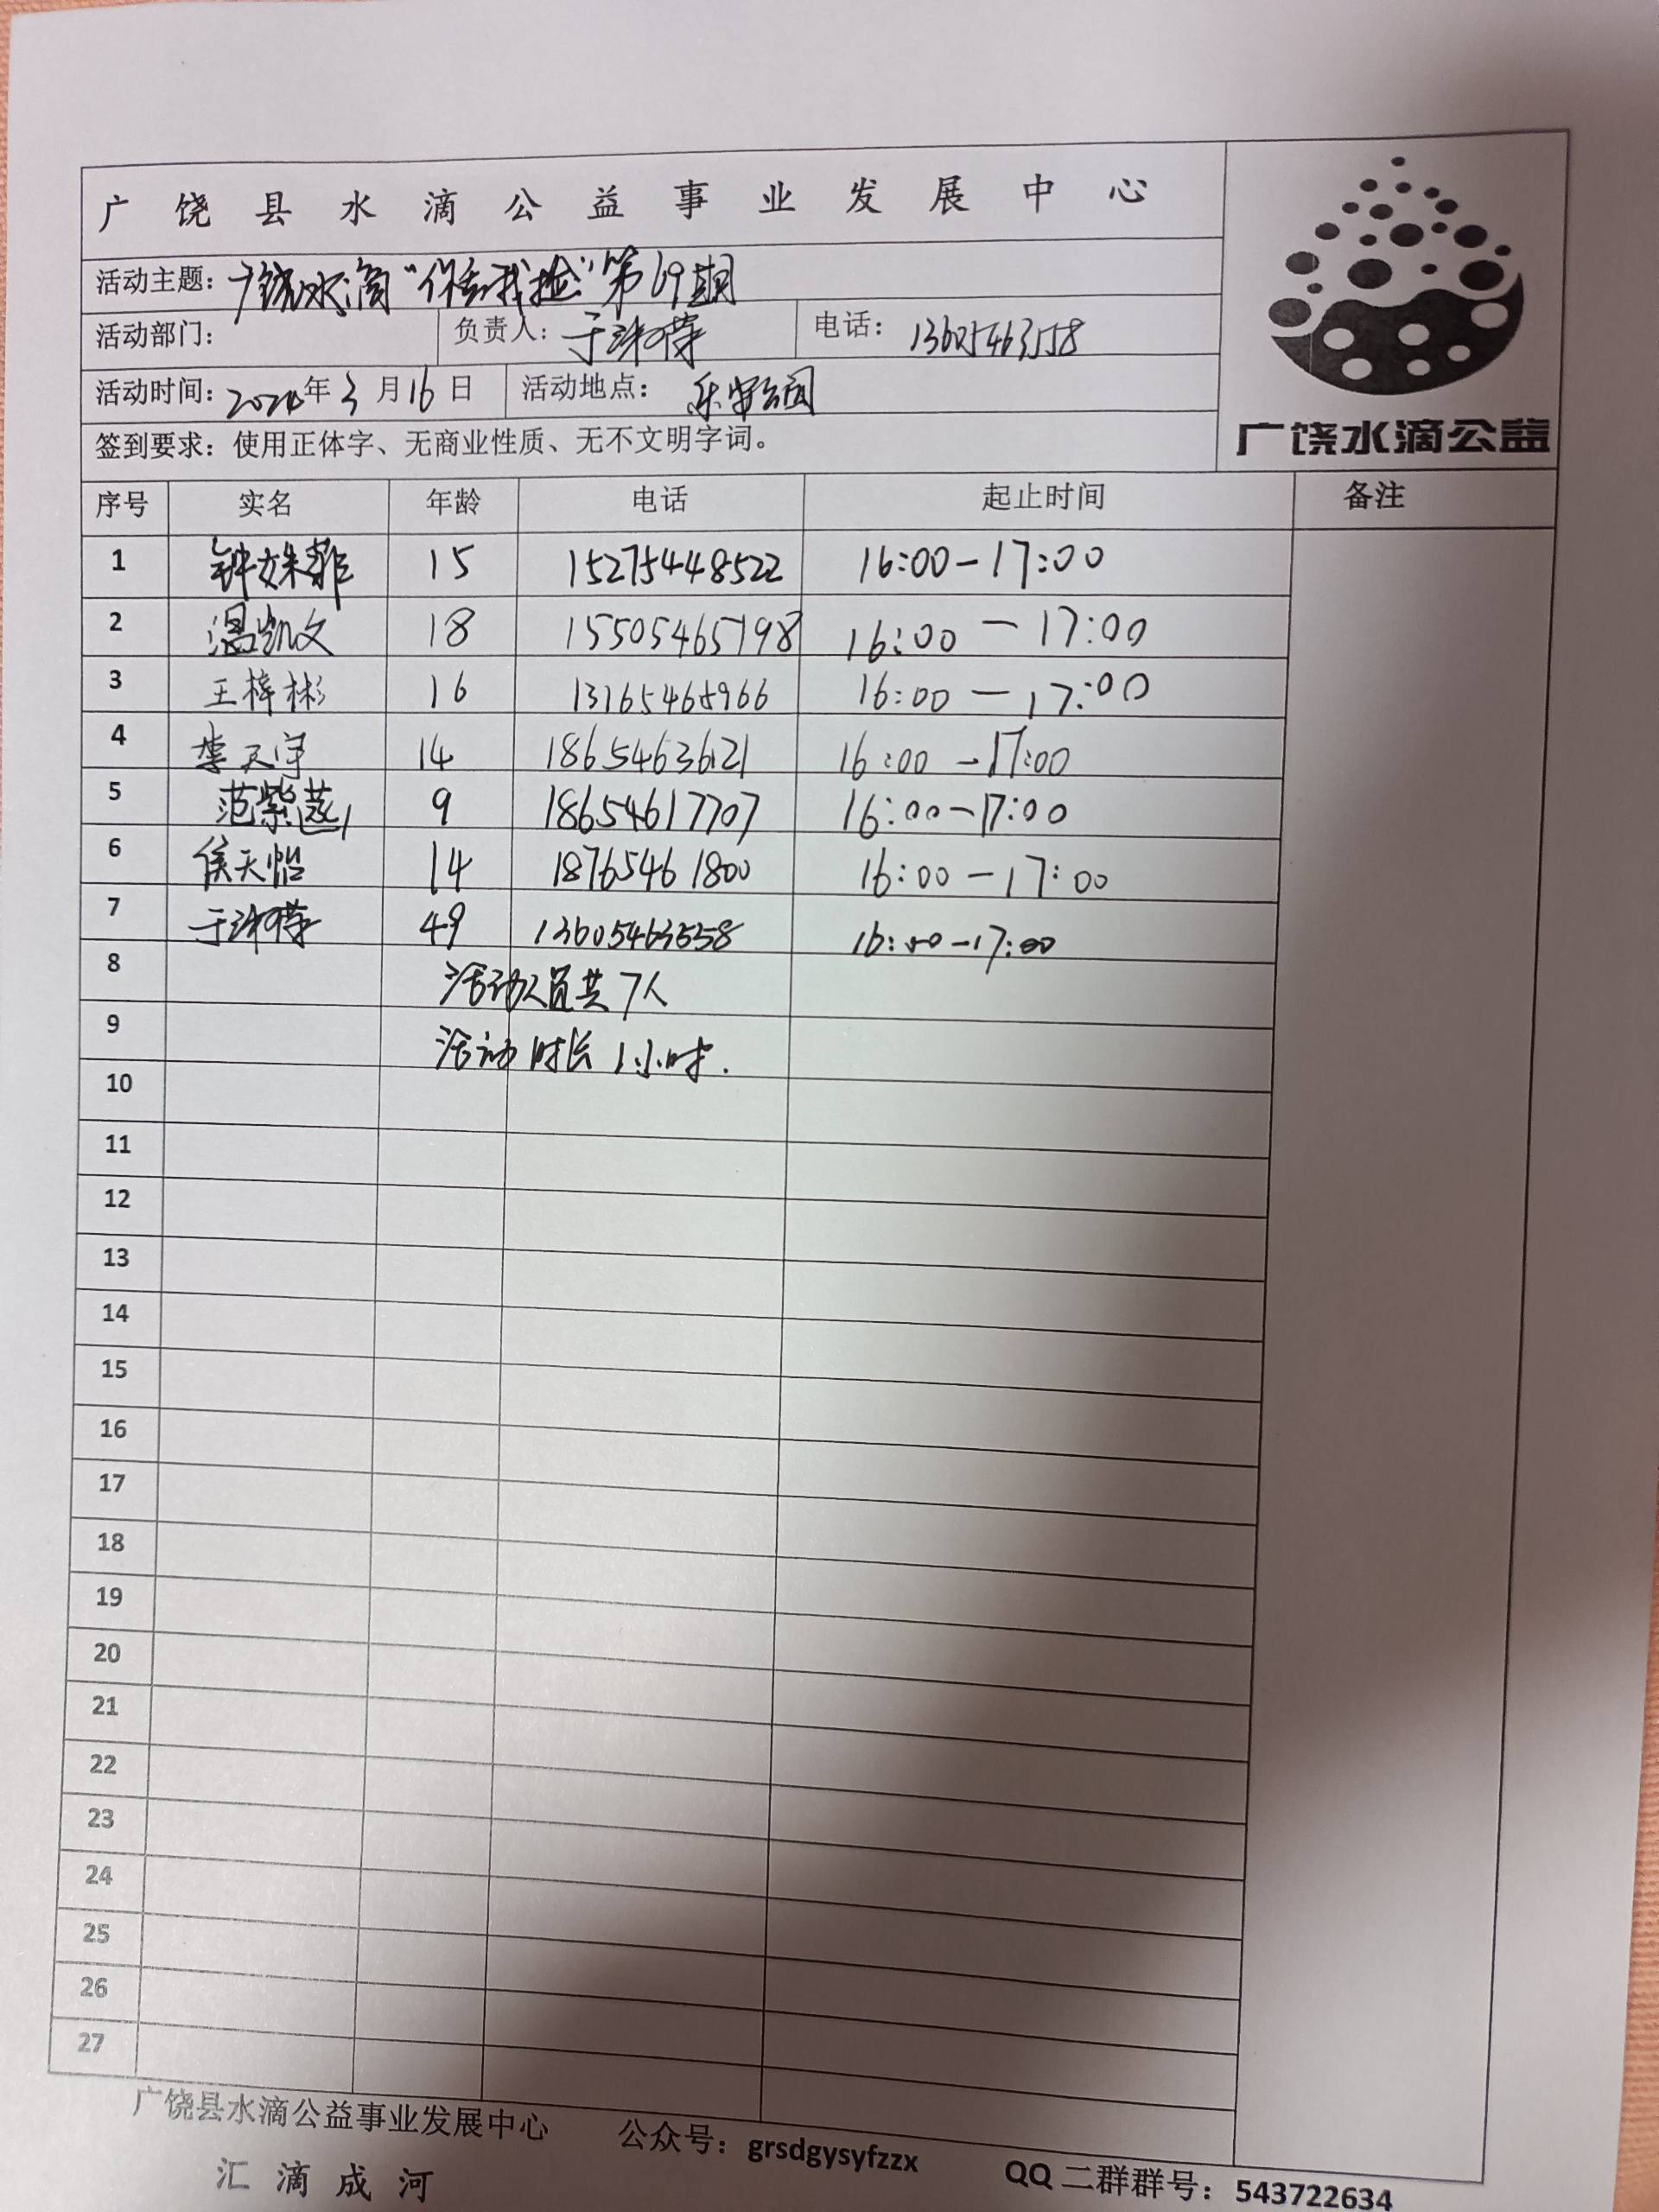 广饶县水滴公益事业发展中心
活动主题：广饶水滴“你丢我捡”第69期
活动部门： 负责人：于洙荣 电话：13605463558
活动时间：2024年3月16日 活动地点：乐安公园
签到要求：使用正体字、无商业性质、无不文明字词。
广饶水滴公益
序号 实名 年龄 电话 起止时间 备注
1 钟姝菲 15 15275448522 16:00-17:00
2 温凯文 18 15505465798 16:00-17:00
3 王梓彬 16 16:00-17:00
4 李天宇 14 18654636121 16:00-17:00
5 范紫 9 18654617707 16:00-17:00
6 侯天怡 14 18765461800 16:00-17:00
7 于洙荣 49 13605463558 16:00-17:00
8 活动人员共7人
9 活动时长1小时.
10
11
12
13
14
15
16
17
18
19
20
21
22
23
24
25
26
27
广饶县水滴公益事业发展中心 公众号：grsdgysyfzzx QQ二群群号：543722634
汇滴成河